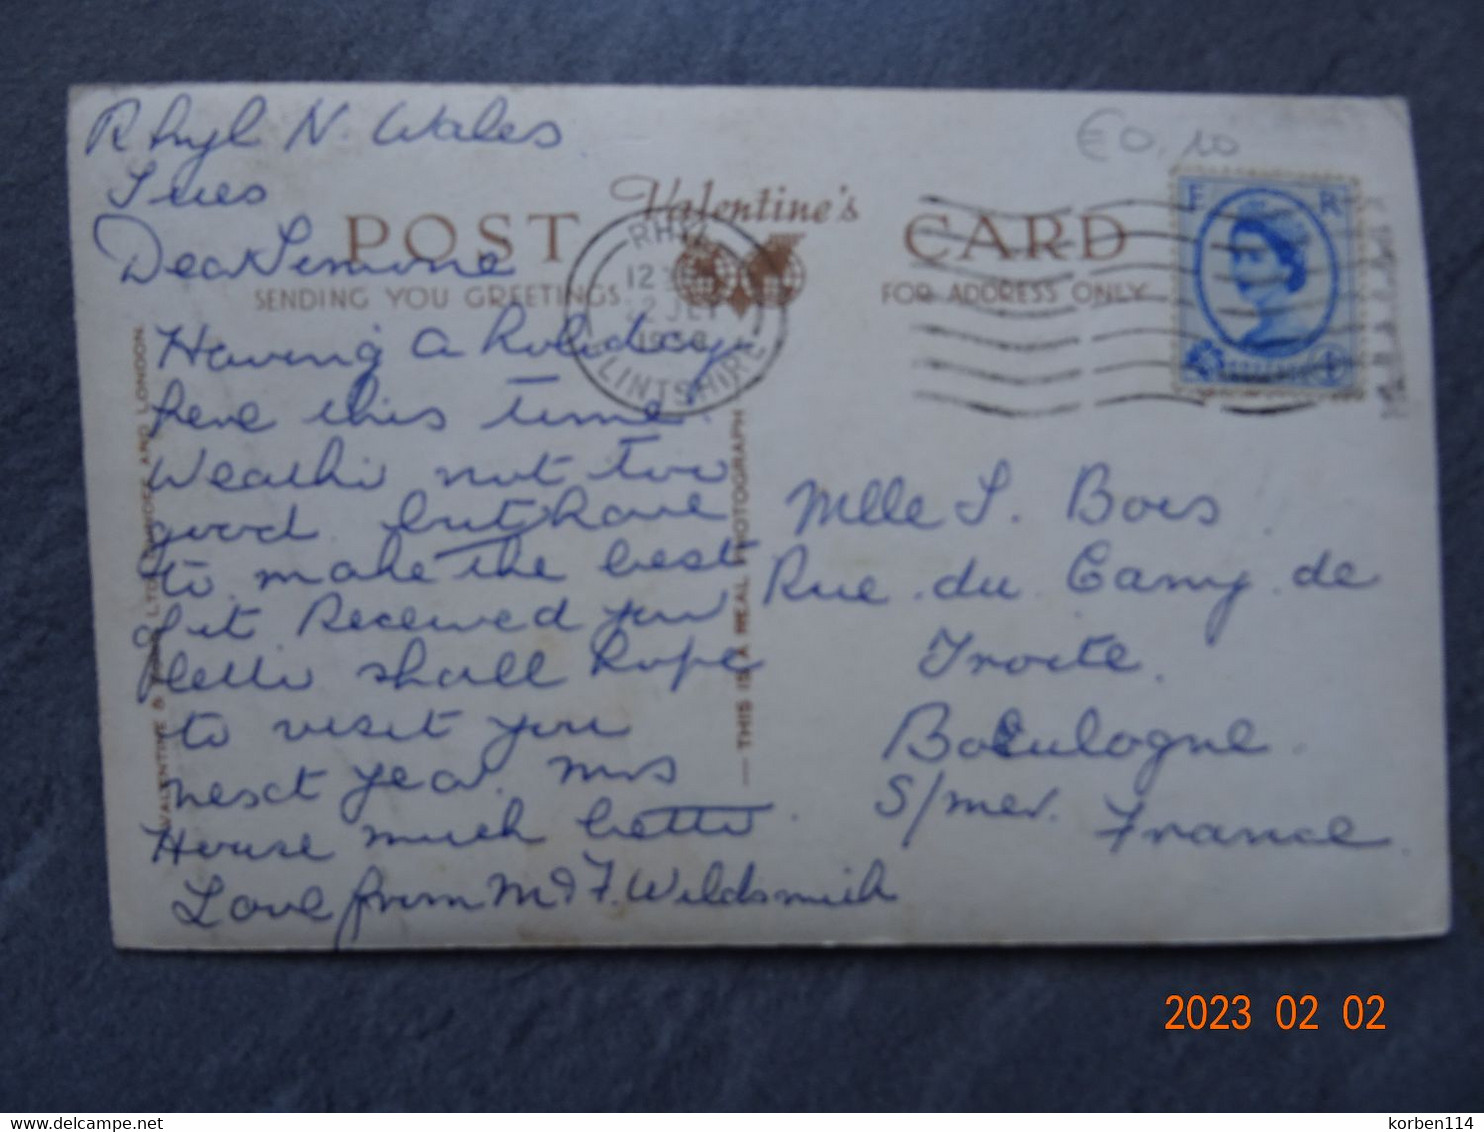 Rhyl N. Wales
Tues
POST Valentine's CARD
Dear Simone
SENDING YOU GREETINGS
FOR ADDRESS ONLY
€0,10
RHYL
12
12 JLY
FLINTSHIRE
E R
Having a holiday
here this time
Weather not too
good but have
to make the best
of it Received your
letter shall hope
to visit you
next year. Mrs
House much better.
Love from M & F. Wildsmith
VALENTINE & SONS, LTD., DUNDEE AND LONDON.
— THIS IS A REAL PHOTOGRAPH
Mlle S. Bois
Rue du Camp de
Droite.
Boulogne
S/mer.
France
2023 02 02
korben114